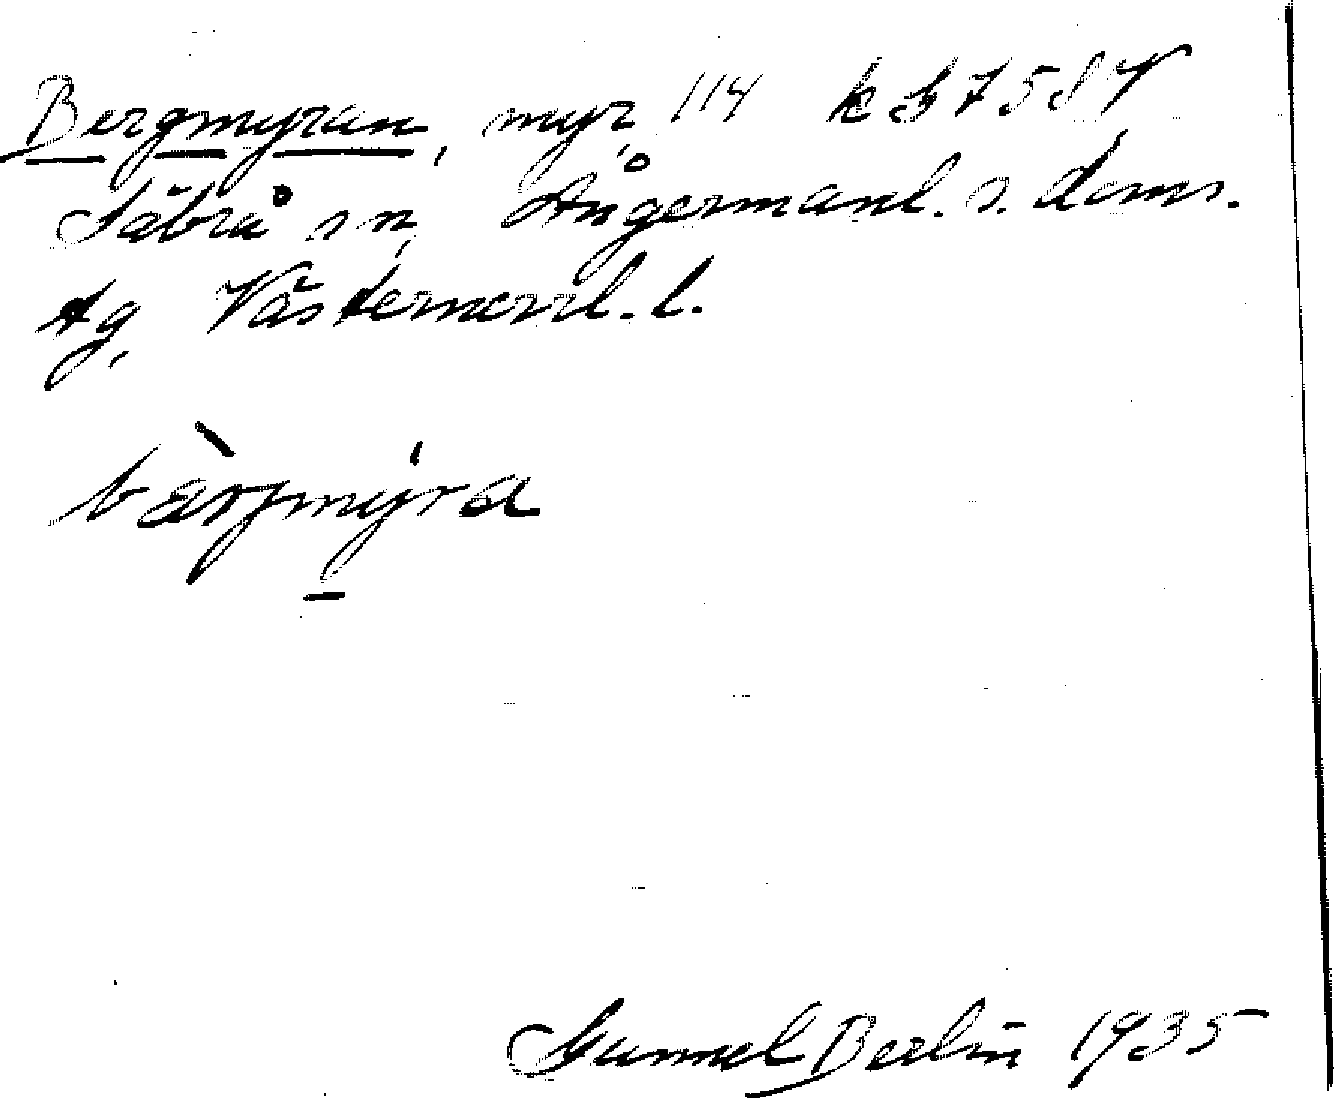 Bergmyran, myr, 114 k G 7587
Säbrå sn, Ångermanl. s. doms.
Ag, Västernorrl. l.
bærjmyra
Gunnel Berlin 1935